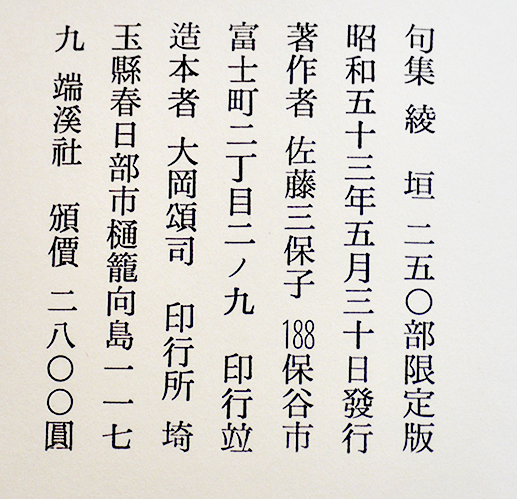 句集 綾 垣 二五〇部限定版
昭和五十三年五月三十日發行
著作者 佐藤三保子 188保谷市
富士町二丁目二ノ九 印行竝
造本者 大岡頌司 印行所 埼
玉縣春日部市樋籠向島一一七
九 端溪社 頒價 二八〇〇圓